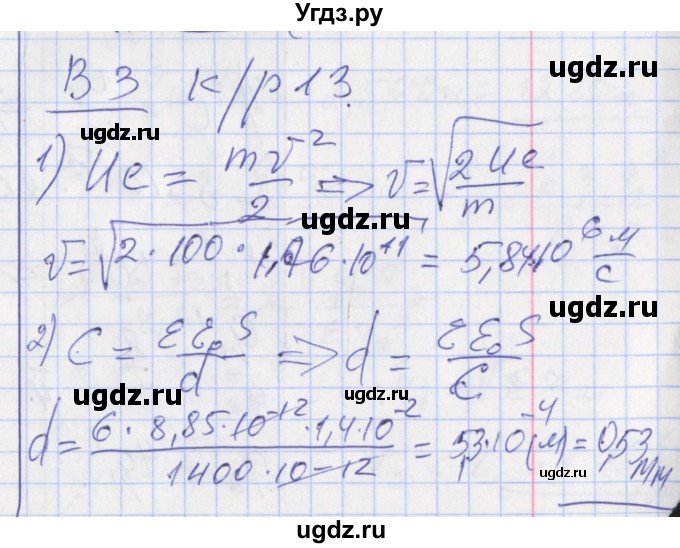 Угдз.ру
ugdz.ru
В 3 к/р 13.
ugdz.ru ugdz.ru
1) Ue = mv²/2 => v = √(2Ue/m)
ugdz.ru ugdz.ru
v = √(2·100·1,76·10¹¹) = 5,8·10⁶ м/с
ugdz.ru
2) C = εε₀S/d => d = εε₀S/C
ugdz.ru ugdz.ru
d = 6·8,85·10⁻¹²·1,4·10⁻²/1400·10⁻¹² = 5,3·10⁻⁴ (м) = 0,53 мм
ugdz.ru ugdz.ru
ugdz.ru